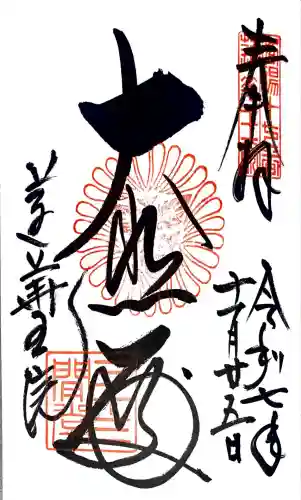 奉拝
令和七年
十一月廿五日
大悲殿
蓮華王院